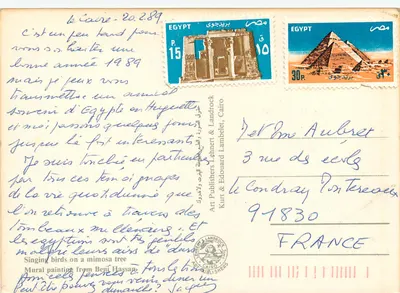 le Caire - 20.2.89
c'est un peu tard pour
vous souhaiter une
bonne année 1989
mais je peux vous
transmettre un amical
souvenir d'Egypte où Huguette
et moi passons quelques jours
Je suis touché en particulier
par tous ces témoignages
de la vie quotidienne que
l'on retrouve à travers des
tombeaux millénaires. Et
les égyptiens sont très gentils
Jacques
EGYPT مصر
P. 15 ١٥
EGYPT مصر
30 P.
Art Publishers Lehnert & Landrock
Kurt & Edouard Lambelet, Cairo
Singing birds on a mimosa tree
Mural painting from Beni Hassan
M et Mme Aubret
3 rue des écoles
le Coudray Montceaux
91830
FRANCE